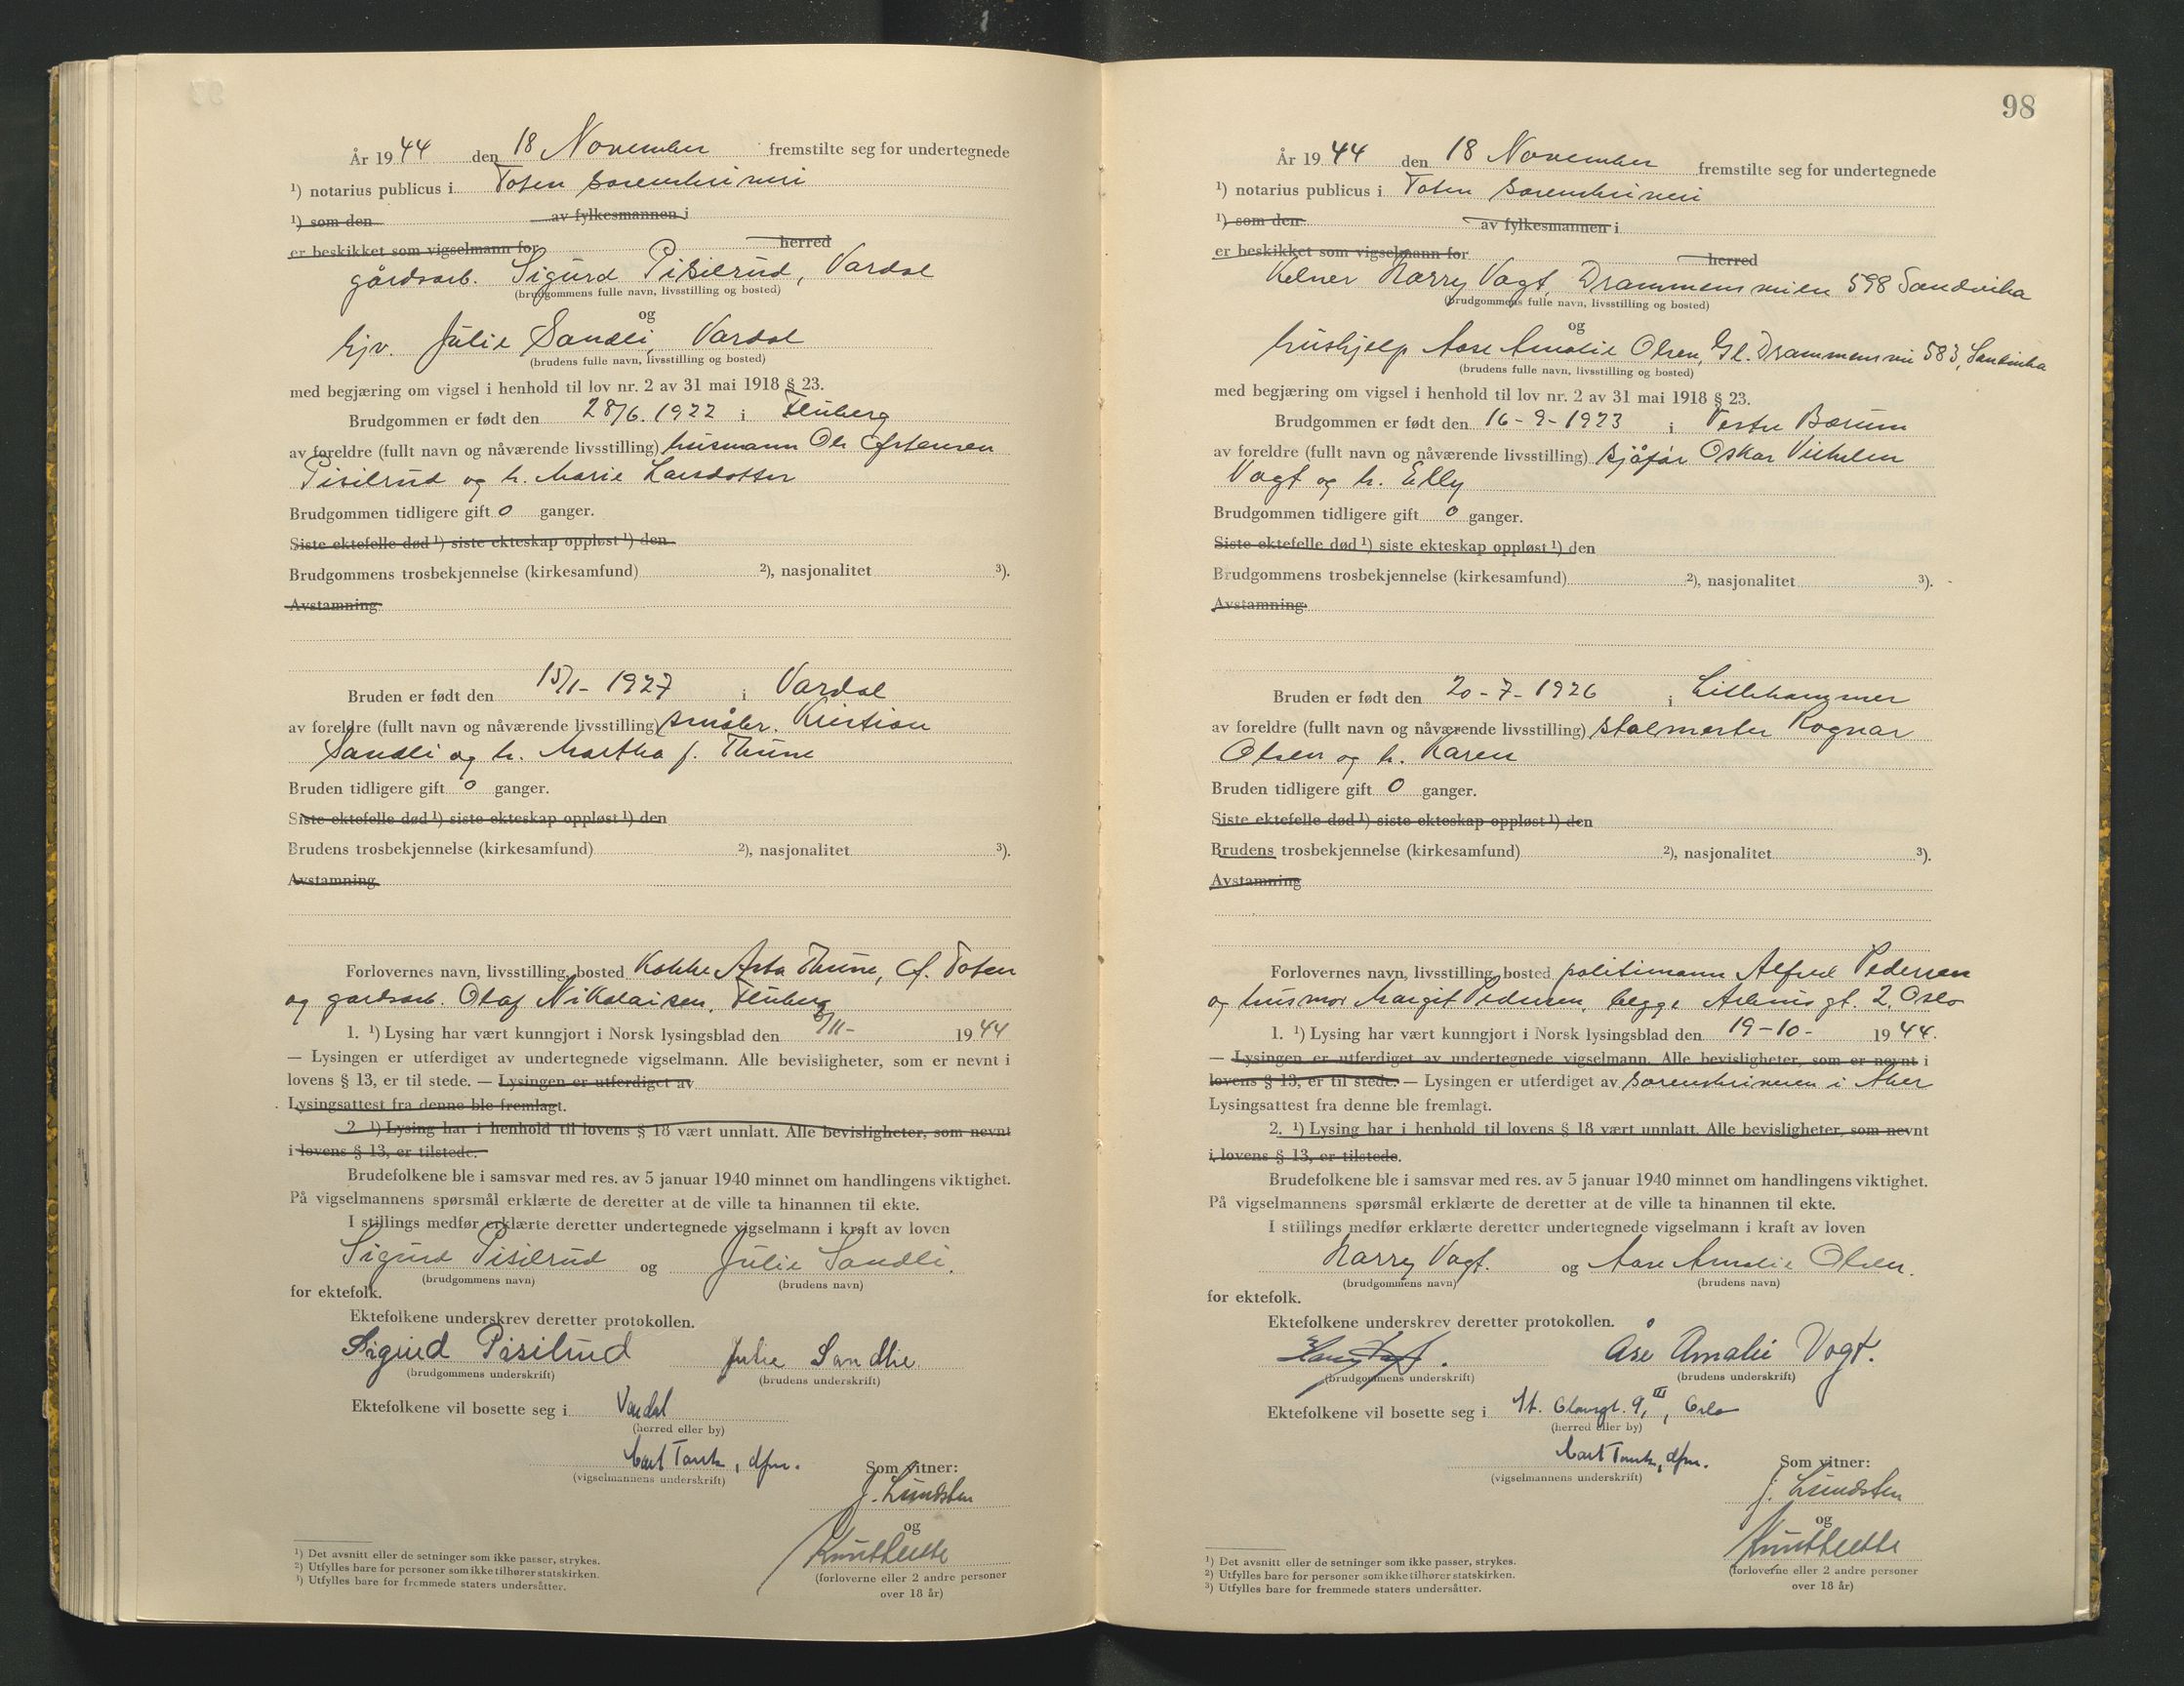 År 1944 den 18 November fremstilte seg for undertegnede
¹) notarius publicus i Toten sorenskriveri
¹) som den av fylkesmannen i
er beskikket som vigselmann for herred
gårdsarb. Sigurd Pisilrud, Vardal
(brudgommens fulle navn, livsstilling og bosted)
og
hjv. Julie Sandli, Vardal
(brudens fulle navn, livsstilling og bosted)
med begjæring om vigsel i henhold til lov nr. 2 av 31 mai 1918 § 23.
Brudgommen er født den 28/6. 1922 i Fluberg
av foreldre (fullt navn og nåværende livsstilling) husmann Ole
Pisilrud og h. Marie Larsdotter
Brudgommen tidligere gift 0 ganger.
Siste ektefelle død ¹) siste ekteskap oppløst ¹) den
Brudgommens trosbekjennelse (kirkesamfund) ²), nasjonalitet ³).
Avstamning
Bruden er født den 15/1- 1927 i Vardal
av foreldre (fullt navn og nåværende livsstilling) småbr. Kristian
Sandli og h. Martha f. Thune
Bruden tidligere gift 0 ganger.
Siste ektefelle død ¹) siste ekteskap oppløst ¹) den
Brudens trosbekjennelse (kirkesamfund) ²), nasjonalitet ³).
Avstamning
Forlovernes navn, livsstilling, bosted Kokke Asta Thune, Toten
og gardsarb. Olaf Nikolaisen, Fluberg
1. ¹) Lysing har vært kunngjort i Norsk lysingsblad den /11- 1944
— Lysingen er utferdiget av undertegnede vigselmann. Alle bevisligheter, som er nevnt i
lovens § 13, er til stede. — Lysingen er utferdiget av
Lysingsattest fra denne ble fremlagt.
2. ¹) Lysing har i henhold til lovens § 18 vært unnlatt. Alle bevisligheter, som nevnt
i lovens § 13, er tilstede.
Brudefolkene ble i samsvar med res. av 5 januar 1940 minnet om handlingens viktighet.
På vigselmannens spørsmål erklærte de deretter at de ville ta hinannen til ekte.
I stillings medfør erklærte deretter undertegnede vigselmann i kraft av loven
Sigurd Pisilrud og Julie Sandli.
(brudgommens navn) (brudens navn)
for ektefolk.
Ektefolkene underskrev deretter protokollen.
Sigurd Pisilrud Julie Sandlie
(brudgommens underskrift) (brudens underskrift)
Ektefolkene vil bosette seg i Vardal
(herred eller by)
Carl Tank, dfm.
(vigselmannens underskrift)
Som vitner:
J. Lundsten
og
(forloverne eller 2 andre personer
over 18 år)
¹) Det avsnitt eller de setninger som ikke passer, strykes.
²) Utfylles bare for personer som ikke tilhører statskirken.
³) Utfylles bare for fremmede staters undersåtter.
98
År 1944 den 18 November fremstilte seg for undertegnede
¹) notarius publicus i Toten sorenskriveri
¹) som den av fylkesmannen i
er beskikket som vigselmann for herred
Kelner Harry Vagt, Drammensveien 598 Sandvika
(brudgommens fulle navn, livsstilling og bosted)
og
hushjelp Aase Amalie Olsen, Gl. Drammensvei 583, Sandvika
(brudens fulle navn, livsstilling og bosted)
med begjæring om vigsel i henhold til lov nr. 2 av 31 mai 1918 § 23.
Brudgommen er født den 16-9-1923 i Vestre Bærum
av foreldre (fullt navn og nåværende livsstilling) sjåfør Oskar Vilhelm
Vagt og h. Elly
Brudgommen tidligere gift 0 ganger.
Siste ektefelle død ¹) siste ekteskap oppløst ¹) den
Brudgommens trosbekjennelse (kirkesamfund) ²), nasjonalitet ³).
Avstamning
Bruden er født den 20-7-1926 i Lillehammer
av foreldre (fullt navn og nåværende livsstilling) stalmester Ragnar
Olsen og h. Karen
Bruden tidligere gift 0 ganger.
Siste ektefelle død ¹) siste ekteskap oppløst ¹) den
Brudens trosbekjennelse (kirkesamfund) ²), nasjonalitet ³).
Avstamning
Forlovernes navn, livsstilling, bosted politimann Alfred Pedersen
og husmor Margit Pedersen, begge gt. 2, Oslo
1. ¹) Lysing har vært kunngjort i Norsk lysingsblad den 19-10- 1944.
— Lysingen er utferdiget av undertegnede vigselmann. Alle bevisligheter, som er nevnt i
lovens § 13, er til stede. — Lysingen er utferdiget av sorenskriveren i Aker
Lysingsattest fra denne ble fremlagt.
2. ¹) Lysing har i henhold til lovens § 18 vært unnlatt. Alle bevisligheter, som nevnt
i lovens § 13, er tilstede.
Brudefolkene ble i samsvar med res. av 5 januar 1940 minnet om handlingens viktighet.
På vigselmannens spørsmål erklærte de deretter at de ville ta hinannen til ekte.
I stillings medfør erklærte deretter undertegnede vigselmann i kraft av loven
Harry Vagt. og Aase Amalie Olsen.
(brudgommens navn) (brudens navn)
for ektefolk.
Ektefolkene underskrev deretter protokollen.
Harry Vagt. Åse Amalie Vagt.
(brudgommens underskrift) (brudens underskrift)
Ektefolkene vil bosette seg i St. Olavsgt. 9, III, Oslo
(herred eller by)
Carl Tank, dfm.
(vigselmannens underskrift)
Som vitner:
J. Lundsten
og
(forloverne eller 2 andre personer
over 18 år)
¹) Det avsnitt eller de setninger som ikke passer, strykes.
²) Utfylles bare for personer som ikke tilhører statskirken.
³) Utfylles bare for fremmede staters undersåtter.